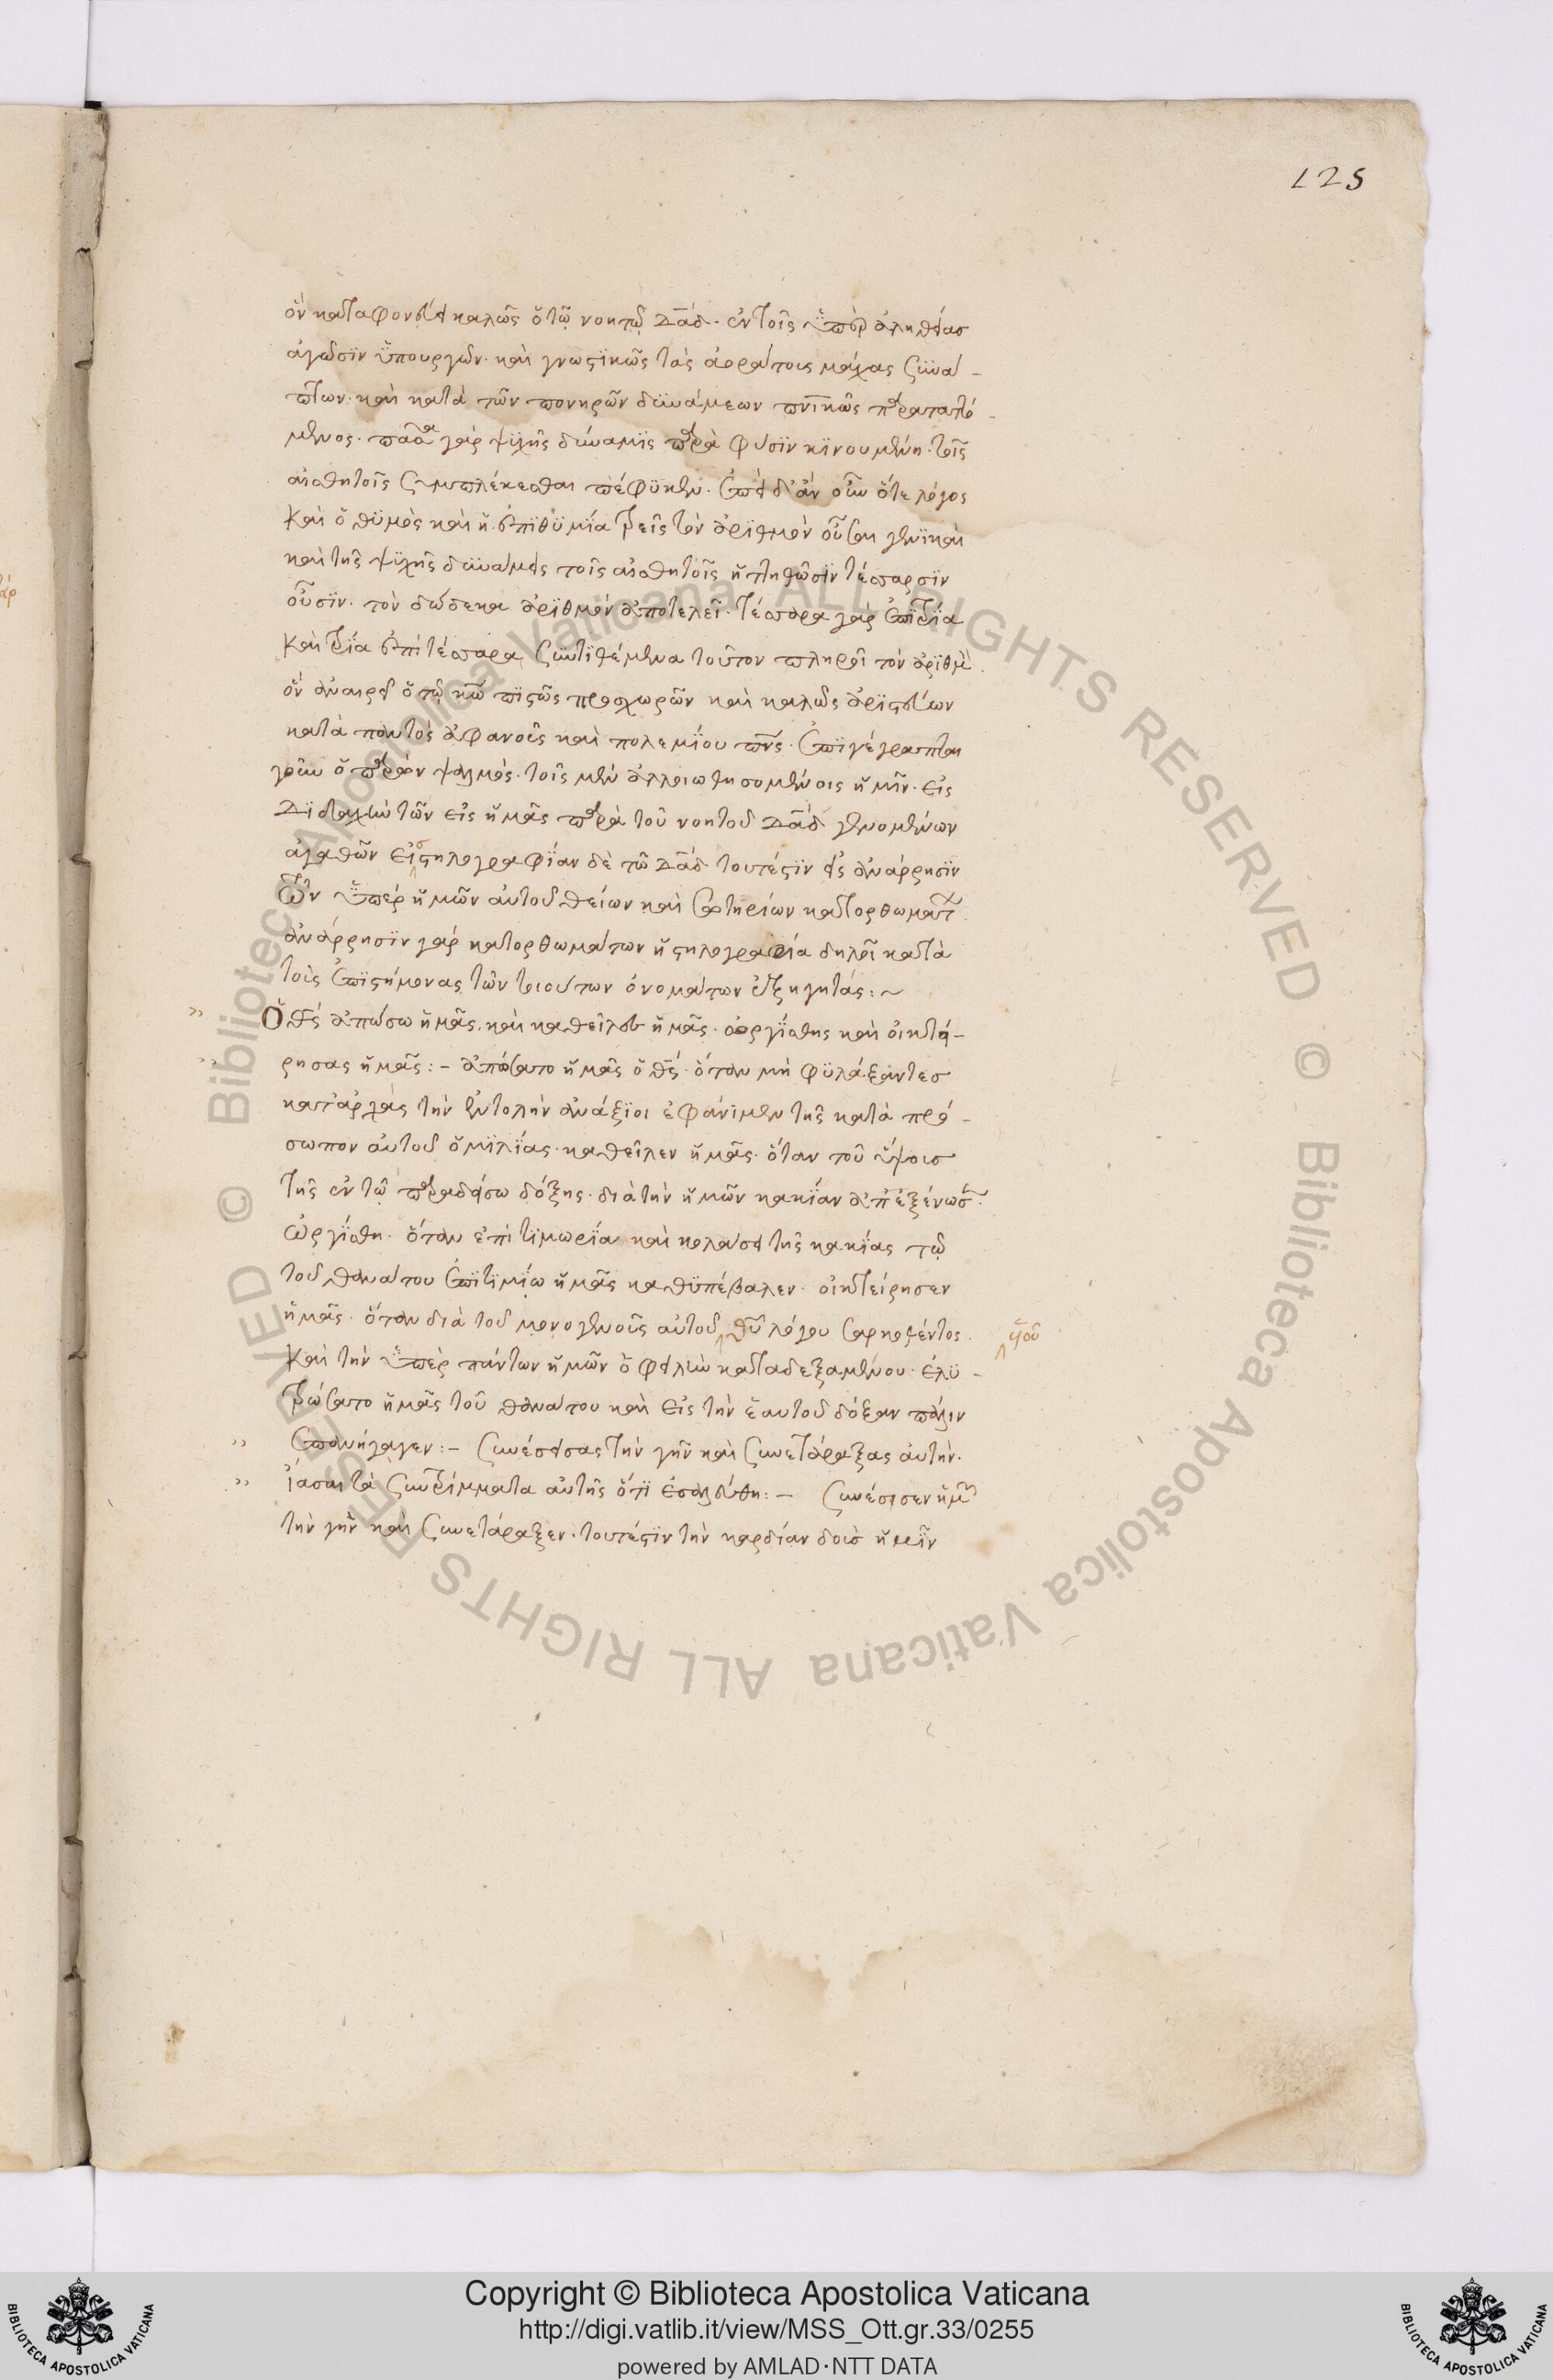 125
ὃν καταφονεύει καλῶς ὁ τῷ νοητῷ δ̅α̅δ̅. ἐν τοῖς ὑπὲρ ἀληθείας
ἀγῶσϊν ὑπουργῶν. καὶ γνωστϊκῶς τὰς ἀοράτους μάχας συνά-
πτων. καὶ κατὰ τῶν πονηρῶν δυνάμεων πνϊκῶς παραταττό-
μενος. πᾶσα γὰρ ψυχῆς δύναμϊς παρὰ φύσϊν κϊνουμένη. τοῖς
αἰσθητοῖς συμπλέκεσθαι πέφυκεν. ἐπεὶ δ' ἂν οὖν ὅ τε λόγος
καὶ ὁ θυμὸς καὶ ἡ ἐπϊθυμΐα τρεῖς τὸν ἀρϊθμὸν οὖσαι γενϊκαὶ
καὶ τῆς ψυχῆς δυνάμεις τοῖς αἰσθητοῖς ἡττηθῶσϊν τέσσαρσϊν
οὖσϊν. τὸν δώδεκα ἀρϊθμὸν ἀποτελεῖ. τέσσαρα γὰρ ἐπὶ τρία
καὶ τρία ἐπὶ τέσσαρα συντϊθέμενα τοῦτον πληροῖ τὸν ἀρϊθμὸ.
ὃν ἀναιρεῖ ὁ τῷ κ̅ω̅ πϊστῶς προσχωρῶν καὶ καλῶς ἀρϊστεύων
κατὰ παντὸς ἀφανοῦς καὶ πολεμΐου π̅ν̅ς̅. ἐπϊγέγραπται
γοῦν ὁ παρὼν ψαλμὸς. τοῖς μὲν ἀλλοιωθησομένοις ἡμῖν. εἰς
δϊδαχὴν τῶν εἰς ἡμᾶς παρὰ τοῦ νοητοῦ δ̅α̅δ̅ γενομένων
ἀγαθῶν εἰς στηλογραφΐαν δὲ τῶ δ̅α̅δ̅ τουτέστϊν εἰς ἀνάρρησϊν
τῶν ὑπὲρ ἡμῶν αὐτοῦ θείων καὶ σωτηρίων κατορθωμάτ.
ἀνάρρησϊν γὰρ κατορθωμάτων ἡ στηλογραφία δηλοῖ κατὰ
τοὺς ἐπϊστήμονας τῶν τοιούτων ὀνομάτων ἐξηγητάς:~
» Ὁ θ̅ς̅ ἀπώσω ἡμᾶς. καὶ καθεῖλες ἡμᾶς. ὠργΐσθης καὶ οἰκτεί-
» ρησας ἡμᾶς:- ἀπώσατο ἡμᾶς ὁ θ̅ς̅. ὅταν μὴ φυλάξαντες
κατ' ἀρχὰς τὴν ἐντολὴν ἀνάξϊοι ἐφάνϊμεν τῆς κατὰ πρό-
σωπον αὐτοῦ ὁμϊλΐας. καθεῖλεν ἡμᾶς. ὅταν τοῦ ὕψους
τῆς ἐν τῷ παραδείσω δόξης. διὰ τὴν ἡμῶν κακΐαν ἀπεξένωσ.
ὠργΐσθη. ὅταν ἐπὶ τϊμωρΐα καὶ κολάσει τῆς κακίας τῷ
τοῦ θανάτου ἐπϊτϊμΐω ἡμᾶς καθυπέβαλεν. οἰκτείρησεν
ἡμᾶς. ὅταν διὰ τοῦ μονογενοῦς αὐτοῦ θ̅υ̅ λόγου σαρκωθέντος. υ̅ι̅οῦ
καὶ τὴν ὑπὲρ πάντων ἡμῶν ὀφειλὴν καταδεξαμένου. ἐλυ-
τρώσατο ἡμᾶς τοῦ θανάτου καὶ εἰς τὴν ἑαυτοῦ δόξαν πάλιν
» ἐπανήγαγεν:- Συνέσεισας τὴν γῆν καὶ συνετάραξας αὐτὴν.
» ἴασαι τὰ συντρίμματα αὐτῆς ὅτϊ ἐσαλεύθη:- Συνέσεισεν ἡμῶν
τὴν γῆν καὶ συνετάραξεν. τουτέστϊν τὴν καρδίαν δοὺς ἡμῖν
Copyright © Biblioteca Apostolica Vaticana
http://digi.vatlib.it/view/MSS_Ott.gr.33/0255
powered by AMLAD·NTT DATA